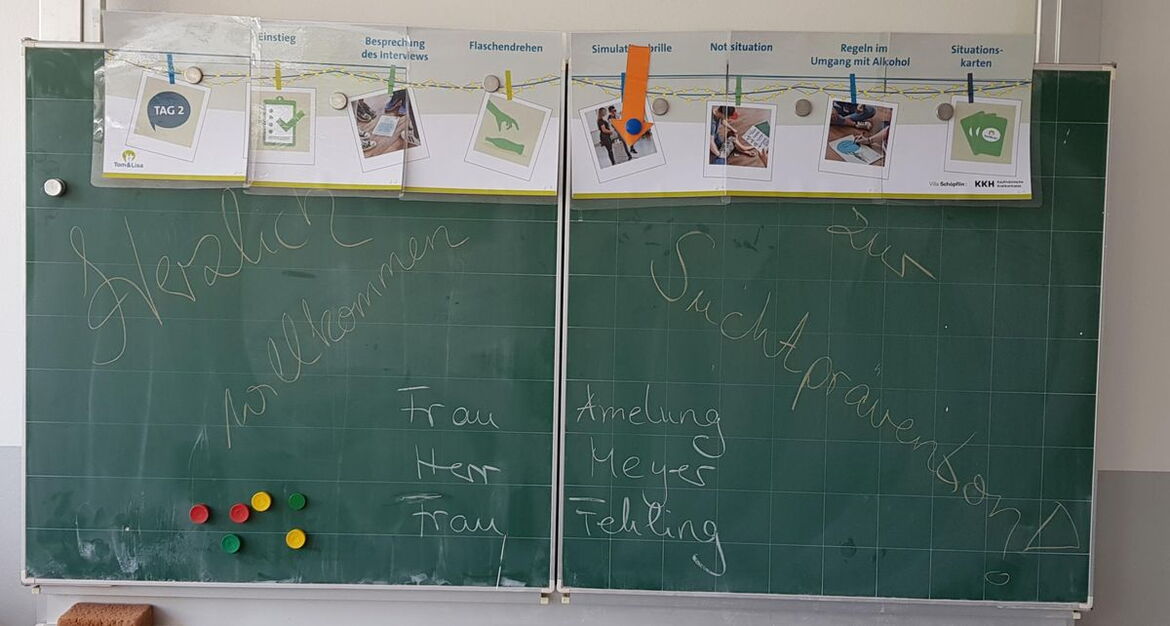 Einstieg
Besprechung
des Interviews
Flaschendrehen
Notsituation
Regeln im
Umgang mit Alkohol
Situations-
karten
TAG 2
Tom&Lisa
Villa Schöpflin
KKH Kaufmännische
Krankenkasse
Herzlich
willkommen
zur
Suchtprävention!
Frau Amelung
Herr Meyer
Frau Fehling